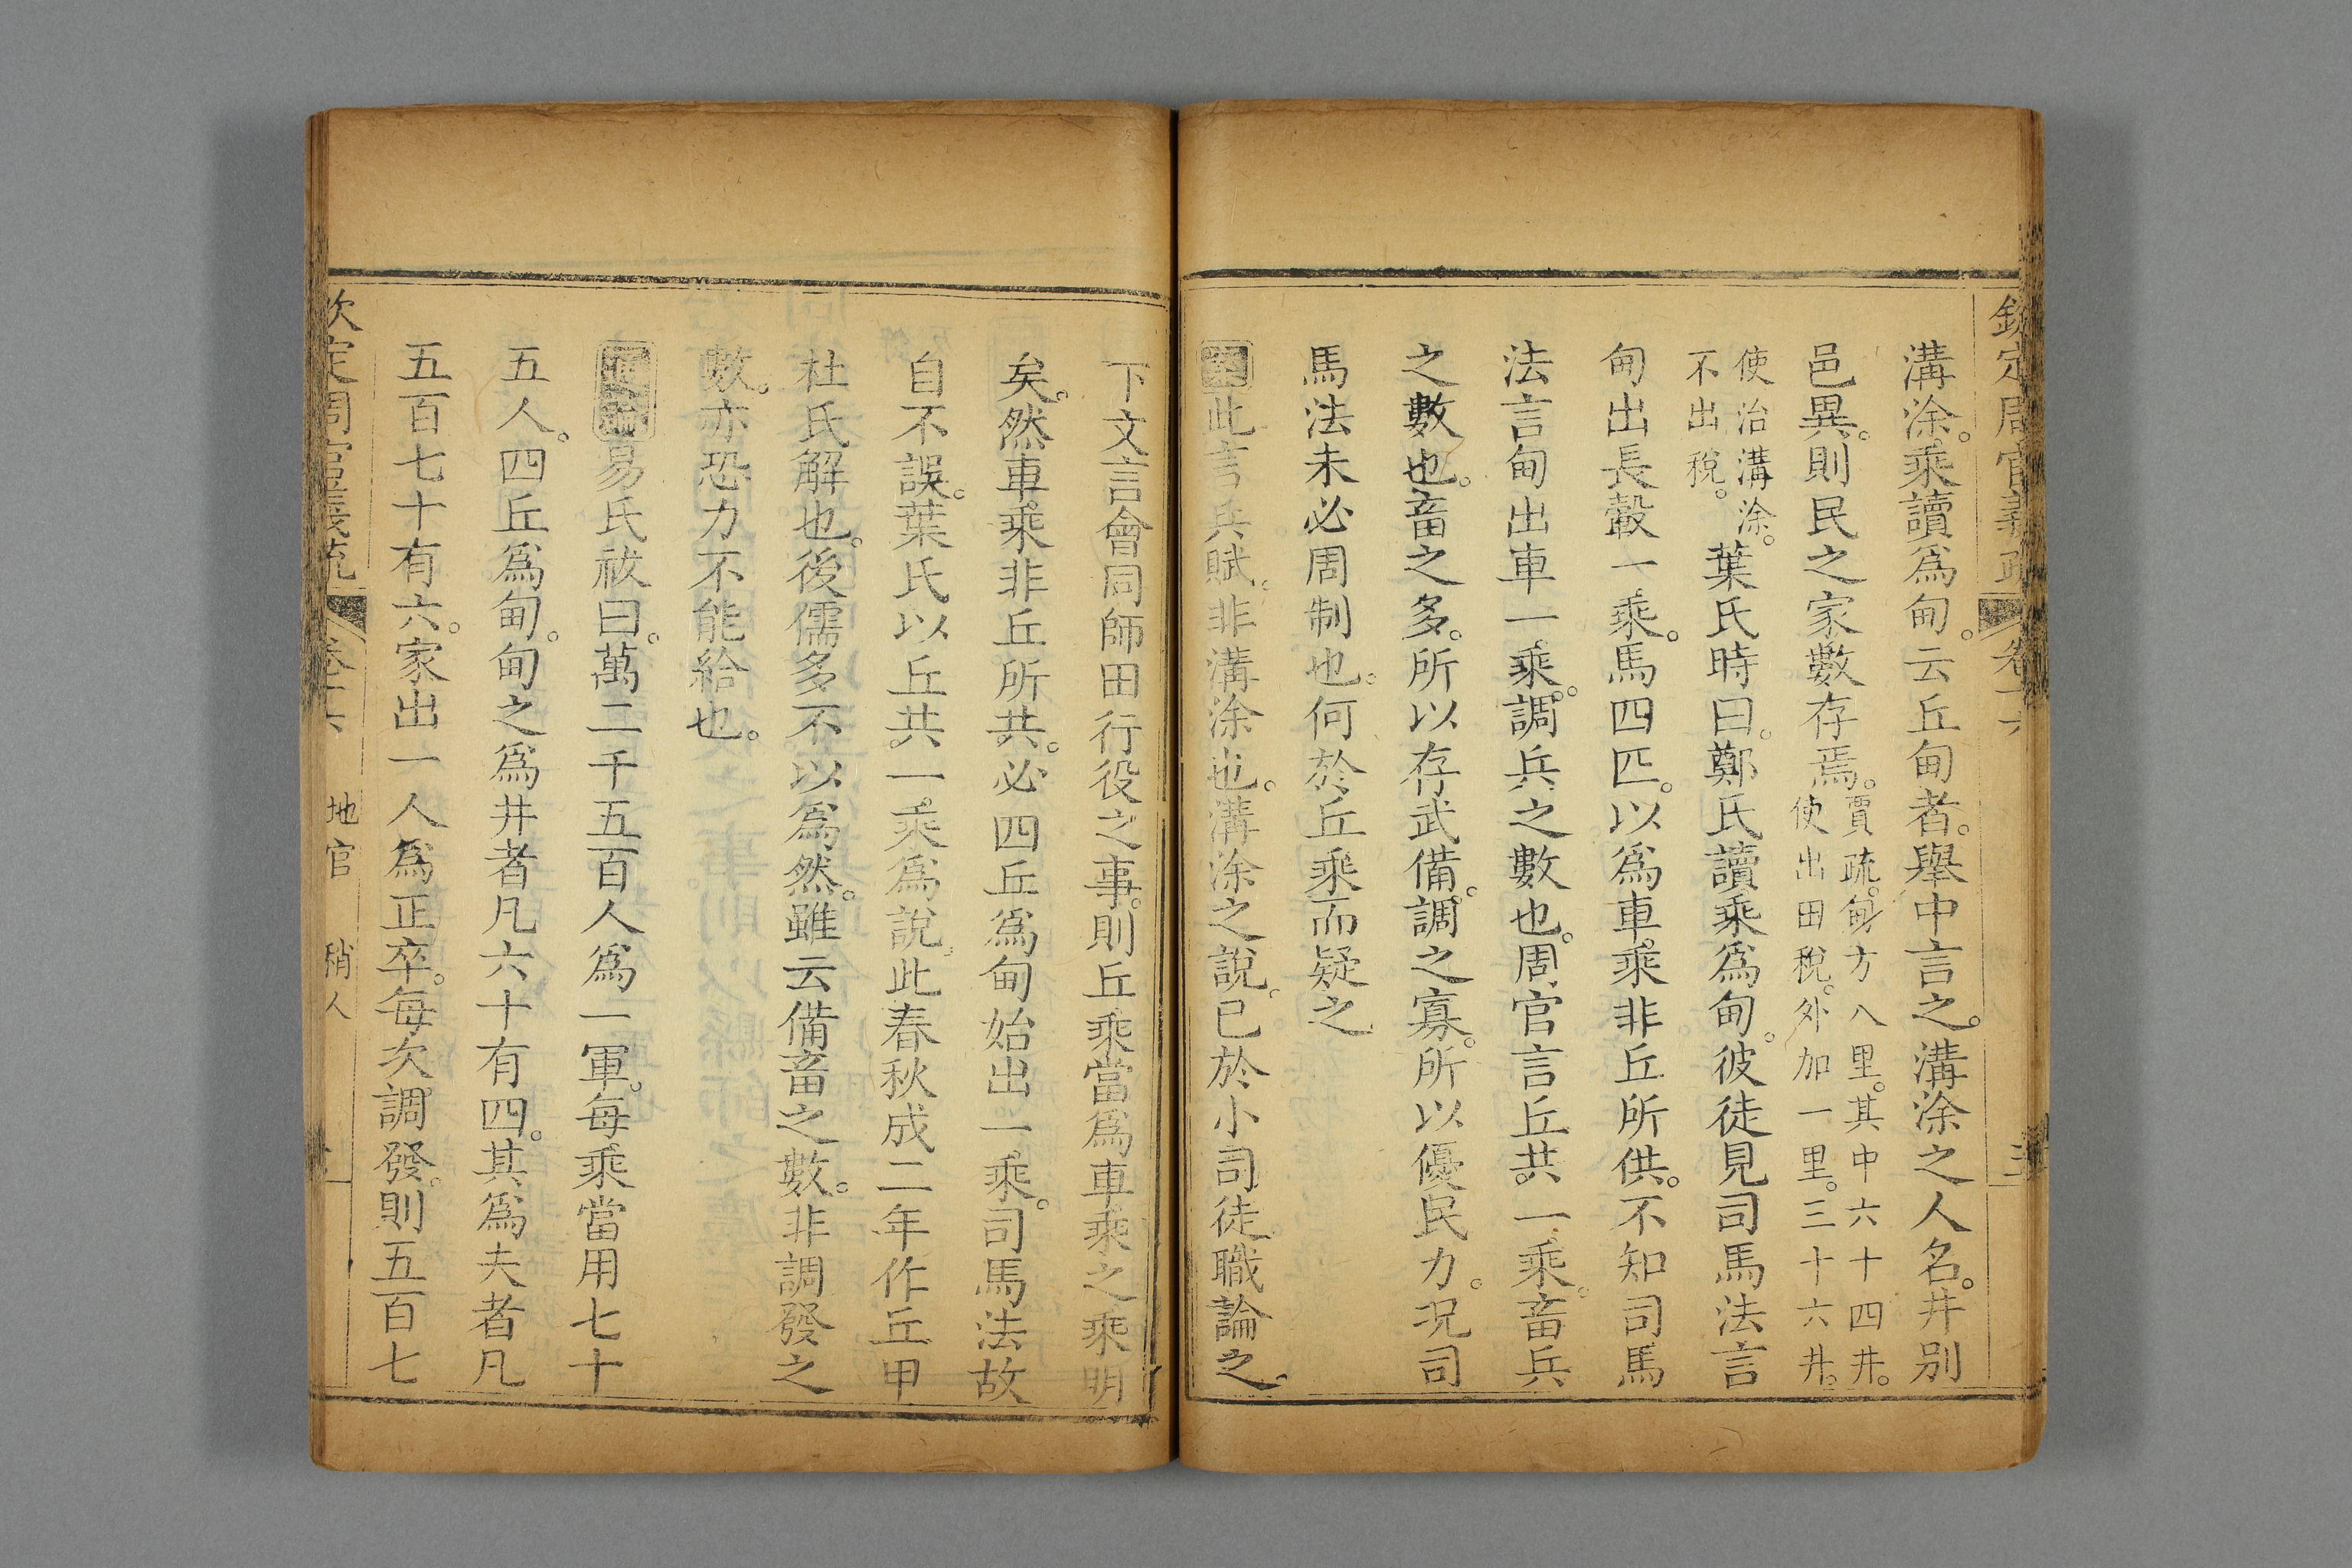 欽定周官義疏 卷十六
溝涂。乘讀爲甸。云丘甸者。舉中言之。溝涂之人名。井別
邑異。則民之家數存焉。賈疏。甸方八里。其中六十四井。
使出田稅。外加一里。三十六井。
使治溝涂。
不出稅。
葉氏時曰。鄭氏讀乘爲甸。彼徒見司馬法言
甸出長轂一乘。馬四匹。以爲車乘非丘所供。不知司馬
法言甸出車一乘。調兵之數也。周官言丘共一乘。畜兵
之數也。畜之多。所以存武備。調之寡。所以優民力。況司
馬法未必周制也。何於丘乘而疑之
案此言兵賦。非溝涂也。溝涂之說。已於小司徒職論之。
下文言會同師田行役之事。則丘乘當爲車乘之乘明
矣。然車乘非丘所共。必四丘爲甸始出一乘。司馬法故
自不誤。葉氏以丘共一乘爲說。此春秋成二年作丘甲
杜氏解也。後儒多不以爲然。雖云備畜之數。非調發之
數。亦恐力不能給也。
易氏祓曰。萬二千五百人爲一軍。每乘當用七十
五人。四丘爲甸。甸之爲井者凡六十有四。其爲夫者凡
五百七十有六。家出一人爲正卒。每次調發。則五百七
欽定周官義疏 卷十六 地官 稍人